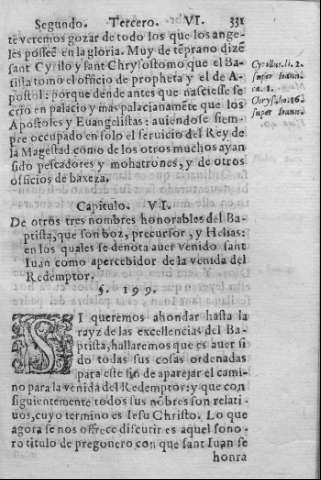 Segundo. Tercero. VI. 331
te veremos gozar de todo los que los ange-
les posseẽ en la gloria. Muy de tẽprano dizẽ
sant Cyrilo y sant Chrysostomo que el Ba-
tista tomo el officio de propheta y el de A-
postol: porque dende antes que nasciesse se
crio en palacio y mas palacianamẽte que los
Apostoles y Euangelistas: auiendose siem-
pre occupado en solo el seruicio del Rey de
la Magestad como de los otros muchos ayan
sido pescadores y mohatrones, y de otros
officios de baxeza.
Cyrillus. li. 2.
super Ioann.
ca. 1.
Chryso. ho. 16.
super Ioann.
Capitulo. VI.
De otros tres nombres honorables del Ba-
ptista, que son boz, precursor, y Helias:
en los quales se denota auer venido sant
Iuan como apercebidor de la venida del
Redemptor.
§. 199.
SI queremos ahondar hasta la
rayz de las excellencias del Ba-
ptista, hallaremos que es auer si
do todas sus cosas ordenadas
para este fin de aparejar el cami-
no para la venida del Redemptor: y que con
siguientemente todos sus nõbres son relati-
uos, cuyo termino es Iesu Christo. Lo que
agora se nos offrece discutir es aquel sono-
ro titulo de pregonero con que sant Iuan se
honra